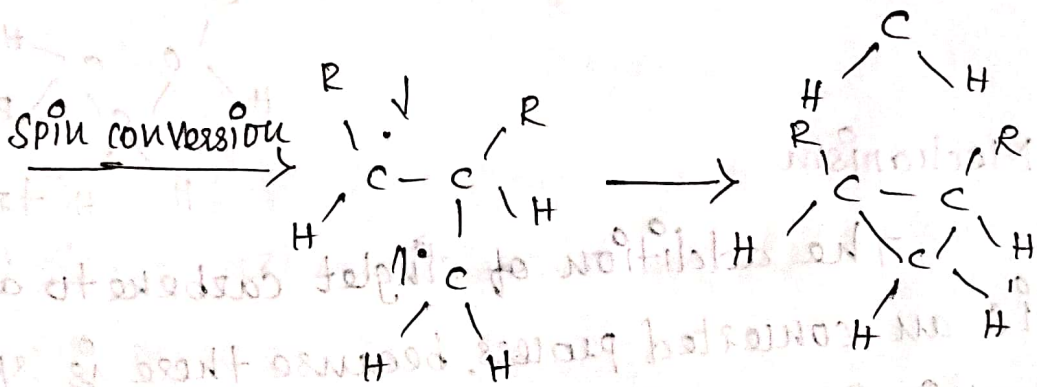 C
H H
Spin conversion
R R
C - C
H H
C
H H
R R
C - C
H H
C
H H